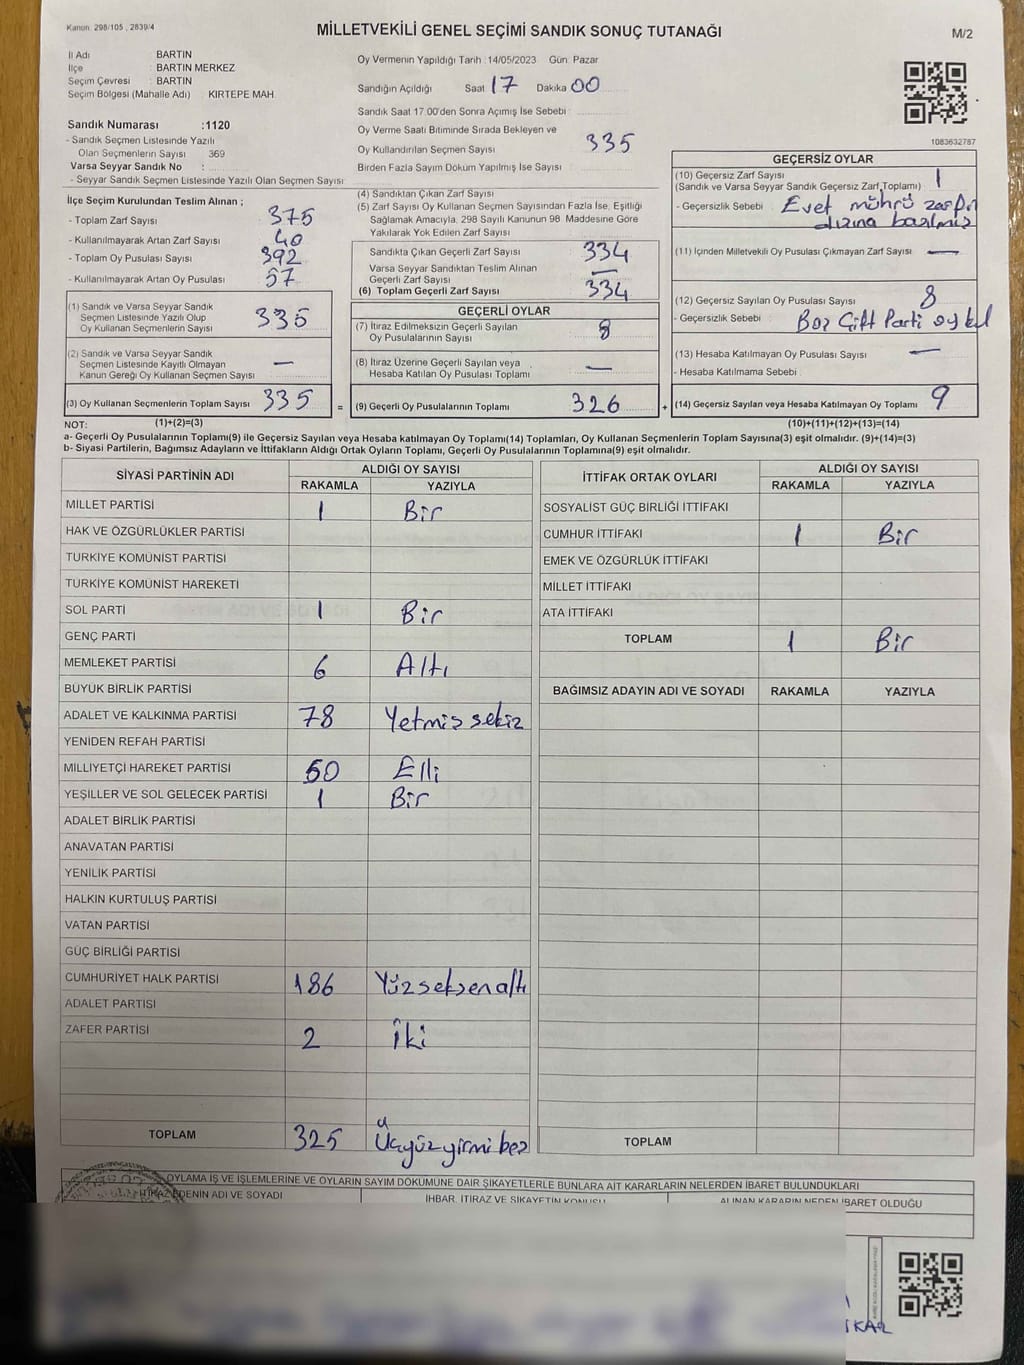 Kanun: 298/105 , 2839/4
MİLLETVEKİLİ GENEL SEÇİMİ SANDIK SONUÇ TUTANAĞI
M/2
İl Adı BARTIN
İlçe BARTIN MERKEZ
Seçim Çevresi : BARTIN
Seçim Bölgesi (Mahalle Adı) KIRTEPE MAH.
Sandık Numarası :1120
- Sandık Seçmen Listesinde Yazılı
Olan Seçmenlerin Sayısı 369
Varsa Seyyar Sandık No :
- Seyyar Sandık Seçmen Listesinde Yazılı Olan Seçmen Sayısı
İlçe Seçim Kurulundan Teslim Alınan ;
- Toplam Zarf Sayısı 375
- Kullanılmayarak Artan Zarf Sayısı 40
- Toplam Oy Pusulası Sayısı 392
- Kullanılmayarak Artan Oy Pusulası 57
(1) Sandık ve Varsa Seyyar Sandık
Seçmen Listesinde Yazılı Olup
Oy Kullanan Seçmenlerin Sayısı 335
(2) Sandık ve Varsa Seyyar Sandık
Seçmen Listesinde Kayıtlı Olmayan
Kanun Gereği Oy Kullanan Seçmen Sayısı —
(3) Oy Kullanan Seçmenlerin Toplam Sayısı 335
Oy Vermenin Yapıldığı Tarih :14/05/2023 Gün: Pazar
Sandığın Açıldığı Saat 17 Dakika 00
Sandık Saat 17.00'den Sonra Açımış İse Sebebi :
Oy Verme Saati Bitiminde Sırada Bekleyen ve
Oy Kullandırılan Seçmen Sayısı 335
Birden Fazla Sayım Döküm Yapılmış İse Sayısı :
(4) Sandıktan Çıkan Zarf Sayısı
(5) Zarf Sayısı Oy Kullanan Seçmen Sayısından Fazla İse, Eşitliği
Sağlamak Amacıyla, 298 Sayılı Kanunun 98. Maddesine Göre
Yakılarak Yok Edilen Zarf Sayısı
Sandıkta Çıkan Geçerli Zarf Sayısı 334
Varsa Seyyar Sandıktan Teslim Alınan
Geçerli Zarf Sayısı —
(6) Toplam Geçerli Zarf Sayısı 334
GEÇERLİ OYLAR
(7) İtiraz Edilmeksizin Geçerli Sayılan
Oy Pusulalarının Sayısı 8
(8) İtiraz Üzerine Geçerli Sayılan veya
Hesaba Katılan Oy Pusulası Toplamı —
= (9) Geçerli Oy Pusulalarının Toplamı 326
1083632787
GEÇERSİZ OYLAR
(10) Geçersiz Zarf Sayısı 1
(Sandık ve Varsa Seyyar Sandık Geçersiz Zarf Toplamı)
- Geçersizlik Sebebi : Evet mührü zarfın
dışına basılmış
(11) İçinden Milletvekili Oy Pusulası Çıkmayan Zarf Sayısı —
(12) Geçersiz Sayılan Oy Pusulası Sayısı 8
- Geçersizlik Sebebi : Boş Çift Parti oy kul
(13) Hesaba Katılmayan Oy Pusulası Sayısı —
- Hesaba Katılmama Sebebi :
+ (14) Geçersiz Sayılan veya Hesaba Katılmayan Oy Toplamı 9
NOT: (1)+(2)=(3) (10)+(11)+(12)+(13)=(14)
a- Geçerli Oy Pusulalarının Toplamı(9) ile Geçersiz Sayılan veya Hesaba katılmayan Oy Toplamı(14) Toplamları, Oy Kullanan Seçmenlerin Toplam Sayısına(3) eşit olmalıdır. (9)+(14)=(3)
b- Siyasi Partilerin, Bağımsız Adayların ve İttifakların Aldığı Ortak Oyların Toplamı, Geçerli Oy Pusulalarının Toplamına(9) eşit olmalıdır.
SİYASİ PARTİNİN ADI ALDIĞI OY SAYISI
RAKAMLA YAZIYLA
MİLLET PARTİSİ 1 Bir
HAK VE ÖZGÜRLÜKLER PARTİSİ
TÜRKİYE KOMÜNİST PARTİSİ
TÜRKİYE KOMÜNİST HAREKETİ
SOL PARTİ 1 Bir
GENÇ PARTİ
MEMLEKET PARTİSİ 6 Altı
BÜYÜK BİRLİK PARTİSİ
ADALET VE KALKINMA PARTİSİ 78 Yetmiş sekiz
YENİDEN REFAH PARTİSİ
MİLLİYETÇİ HAREKET PARTİSİ 50 Elli
YEŞİLLER VE SOL GELECEK PARTİSİ 1 Bir
ADALET BİRLİK PARTİSİ
ANAVATAN PARTİSİ
YENİLİK PARTİSİ
HALKIN KURTULUŞ PARTİSİ
VATAN PARTİSİ
GÜÇ BİRLİĞİ PARTİSİ
CUMHURİYET HALK PARTİSİ 186 Yüzseksenaltı
ADALET PARTISI
ZAFER PARTİSİ 2 İki
TOPLAM 325 Üçyüzyirmi beş
İTTİFAK ORTAK OYLARI ALDIĞI OY SAYISI
RAKAMLA YAZIYLA
SOSYALİST GÜÇ BİRLİĞİ İTTİFAKI
CUMHUR İTTİFAKI 1 Bir
EMEK VE ÖZGÜRLÜK İTTİFAKI
MİLLET İTTİFAKI
ATA İTTİFAKI
TOPLAM 1 Bir
BAĞIMSIZ ADAYIN ADI VE SOYADI RAKAMLA YAZIYLA
TOPLAM
OYLAMA İŞ VE İŞLEMLERİNE VE OYLARIN SAYIM DÖKÜMÜNE DAİR ŞİKAYETLERLE BUNLARA AİT KARARLARIN NELERDEN İBARET BULUNDUKLARI
İTİRAZ EDENİN ADI VE SOYADI İHBAR, İTİRAZ VE ŞİKAYETİN KONUSU ALINAN KARARIN NEDEN İBARET OLDUĞU